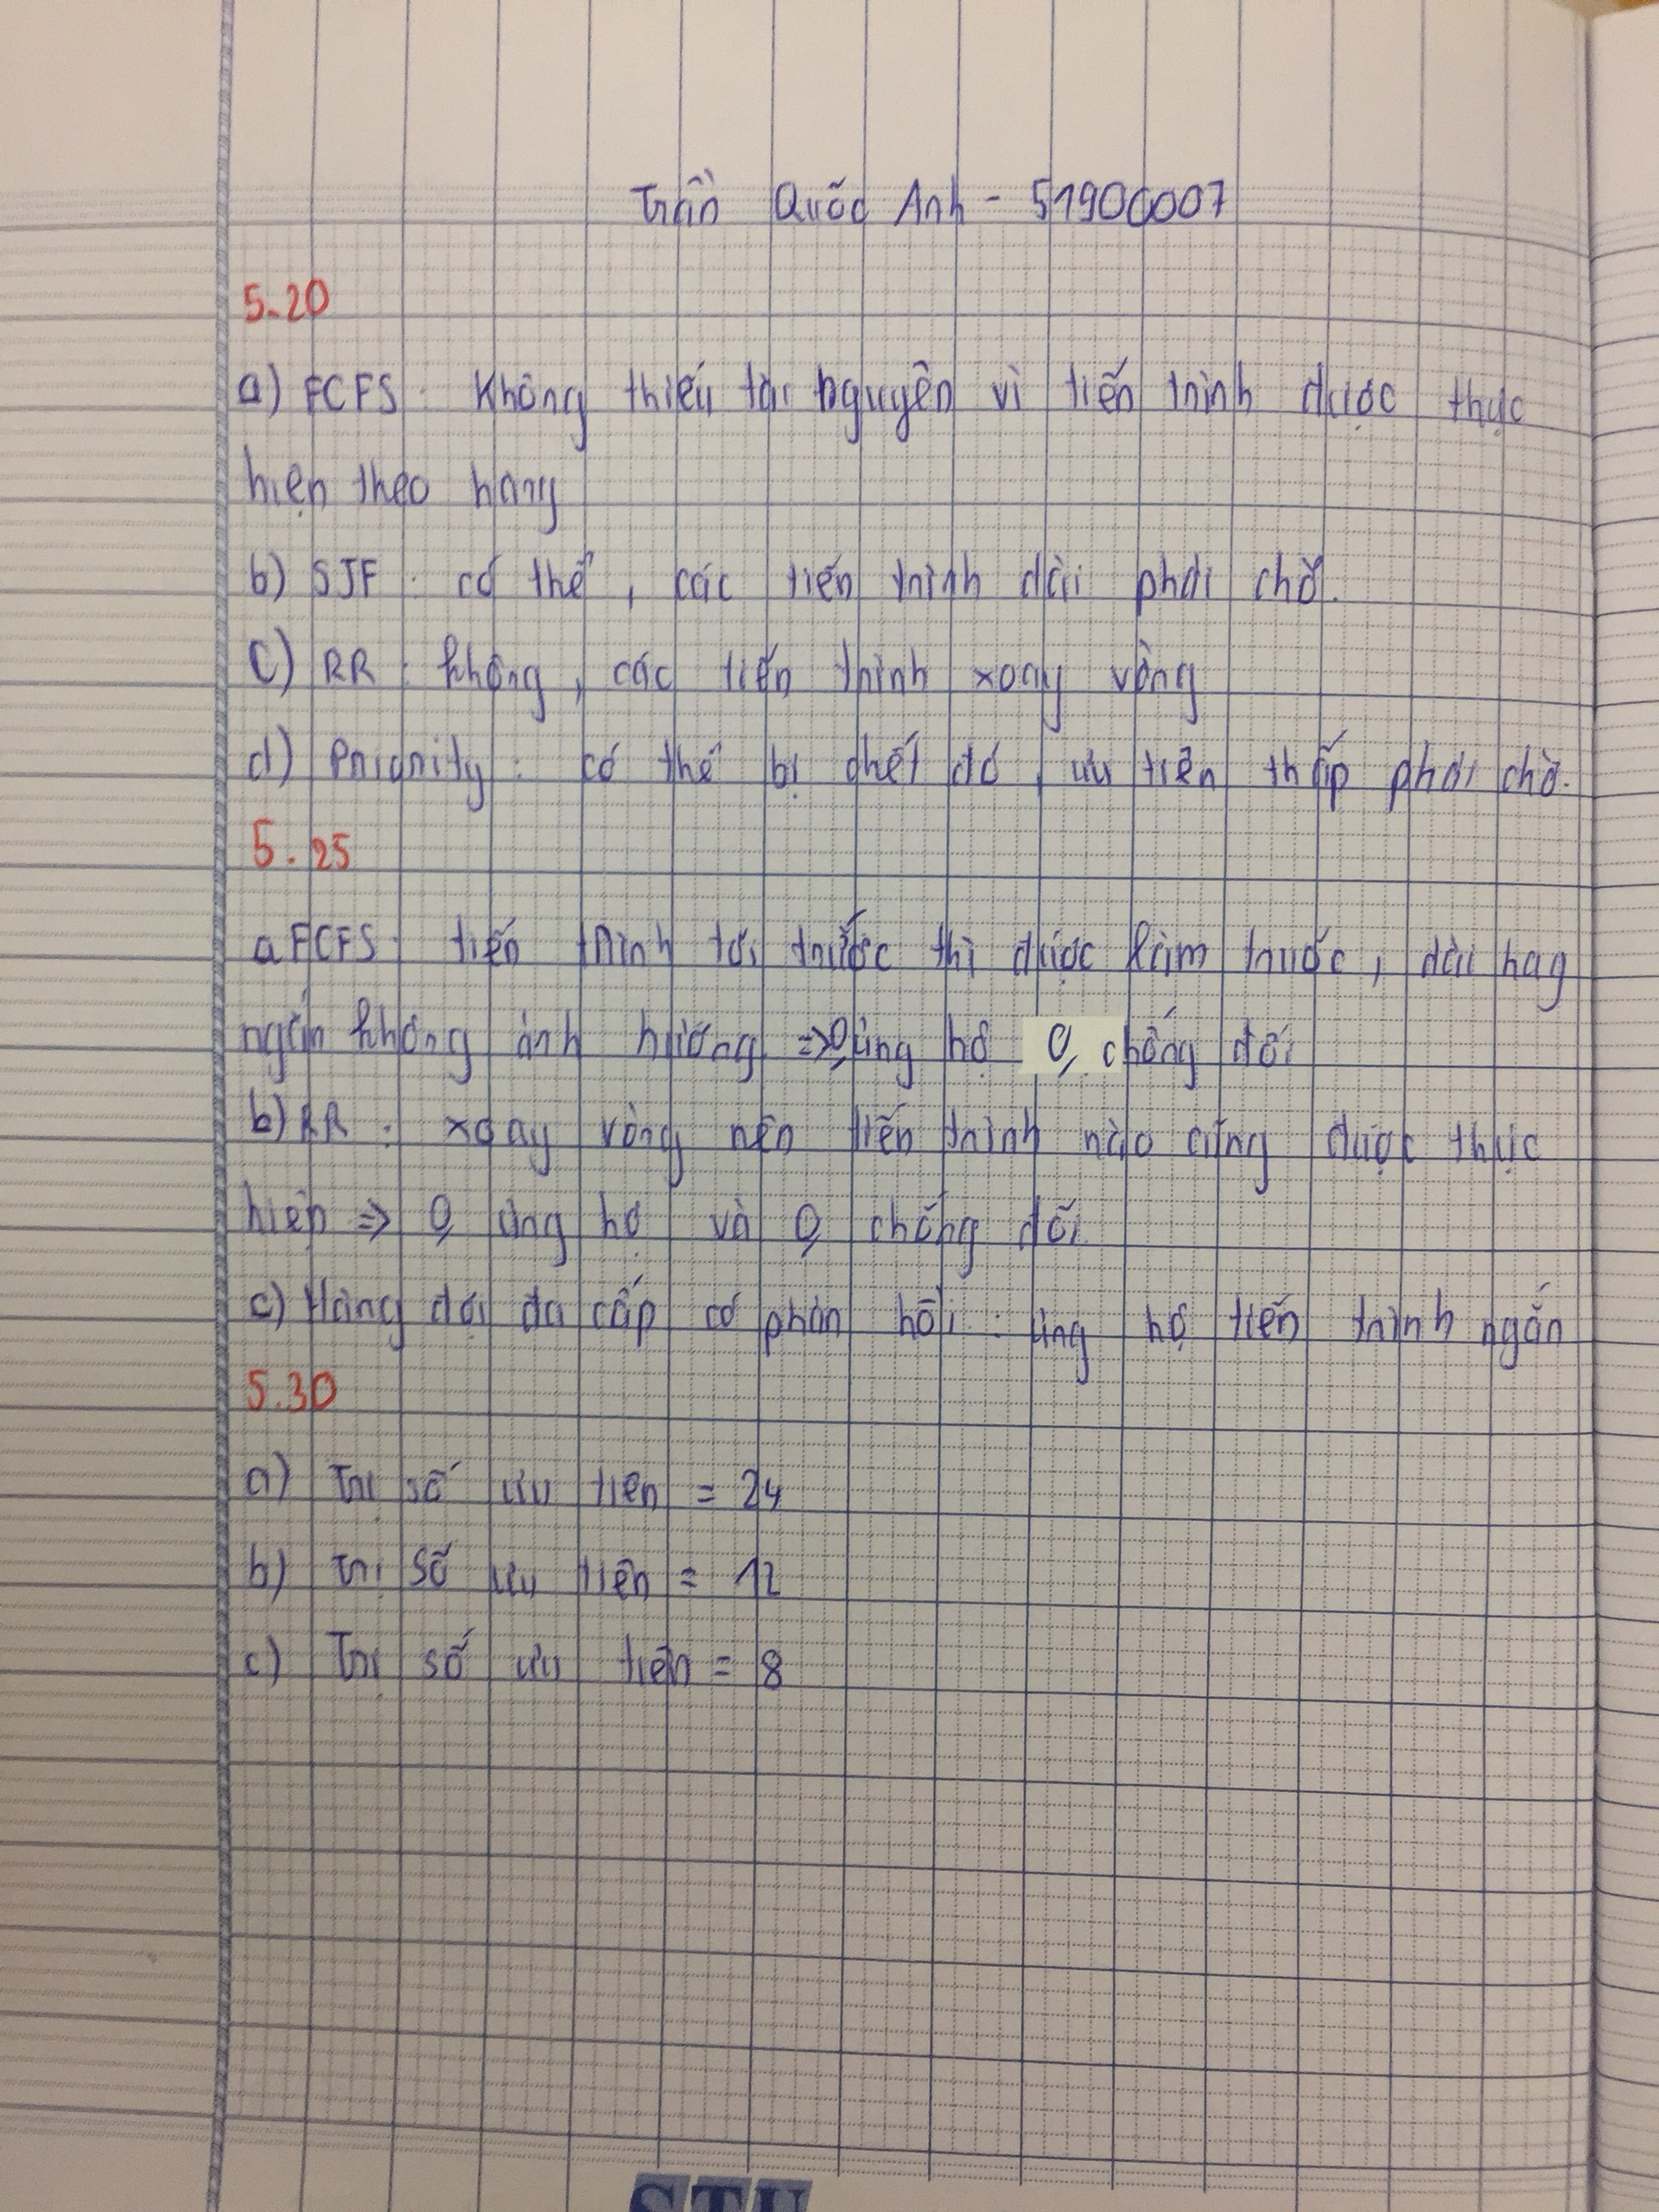 Trần Quốc Anh - 51900007
5.20
a) FCFS: Không thiếu tài nguyên vì tiến trình được thực
hiện theo hàng
b) SJF: có thể, các tiến trình dài phải chờ.
c) RR: không, các tiến trình xoay vòng
d) Priority: có thể bị chết đó, ưu tiên thấp phải chờ.
5.25
a FCFS: tiến trình tới trước thì được làm trước, dài hay
ngắn không ảnh hưởng => 0 ủng hộ 0 chống đối
b) RR: xoay vòng nên tiến trình nào cũng được thực
hiện => 0 ủng hộ và 0 chống đối
c) Hàng đợi đa cấp có phản hồi: ủng hộ tiến trình ngắn
5.30
a) Trị số ưu tiên = 24
b) Trị số ưu tiên = 12
c) Trị số ưu tiên = 8
STU